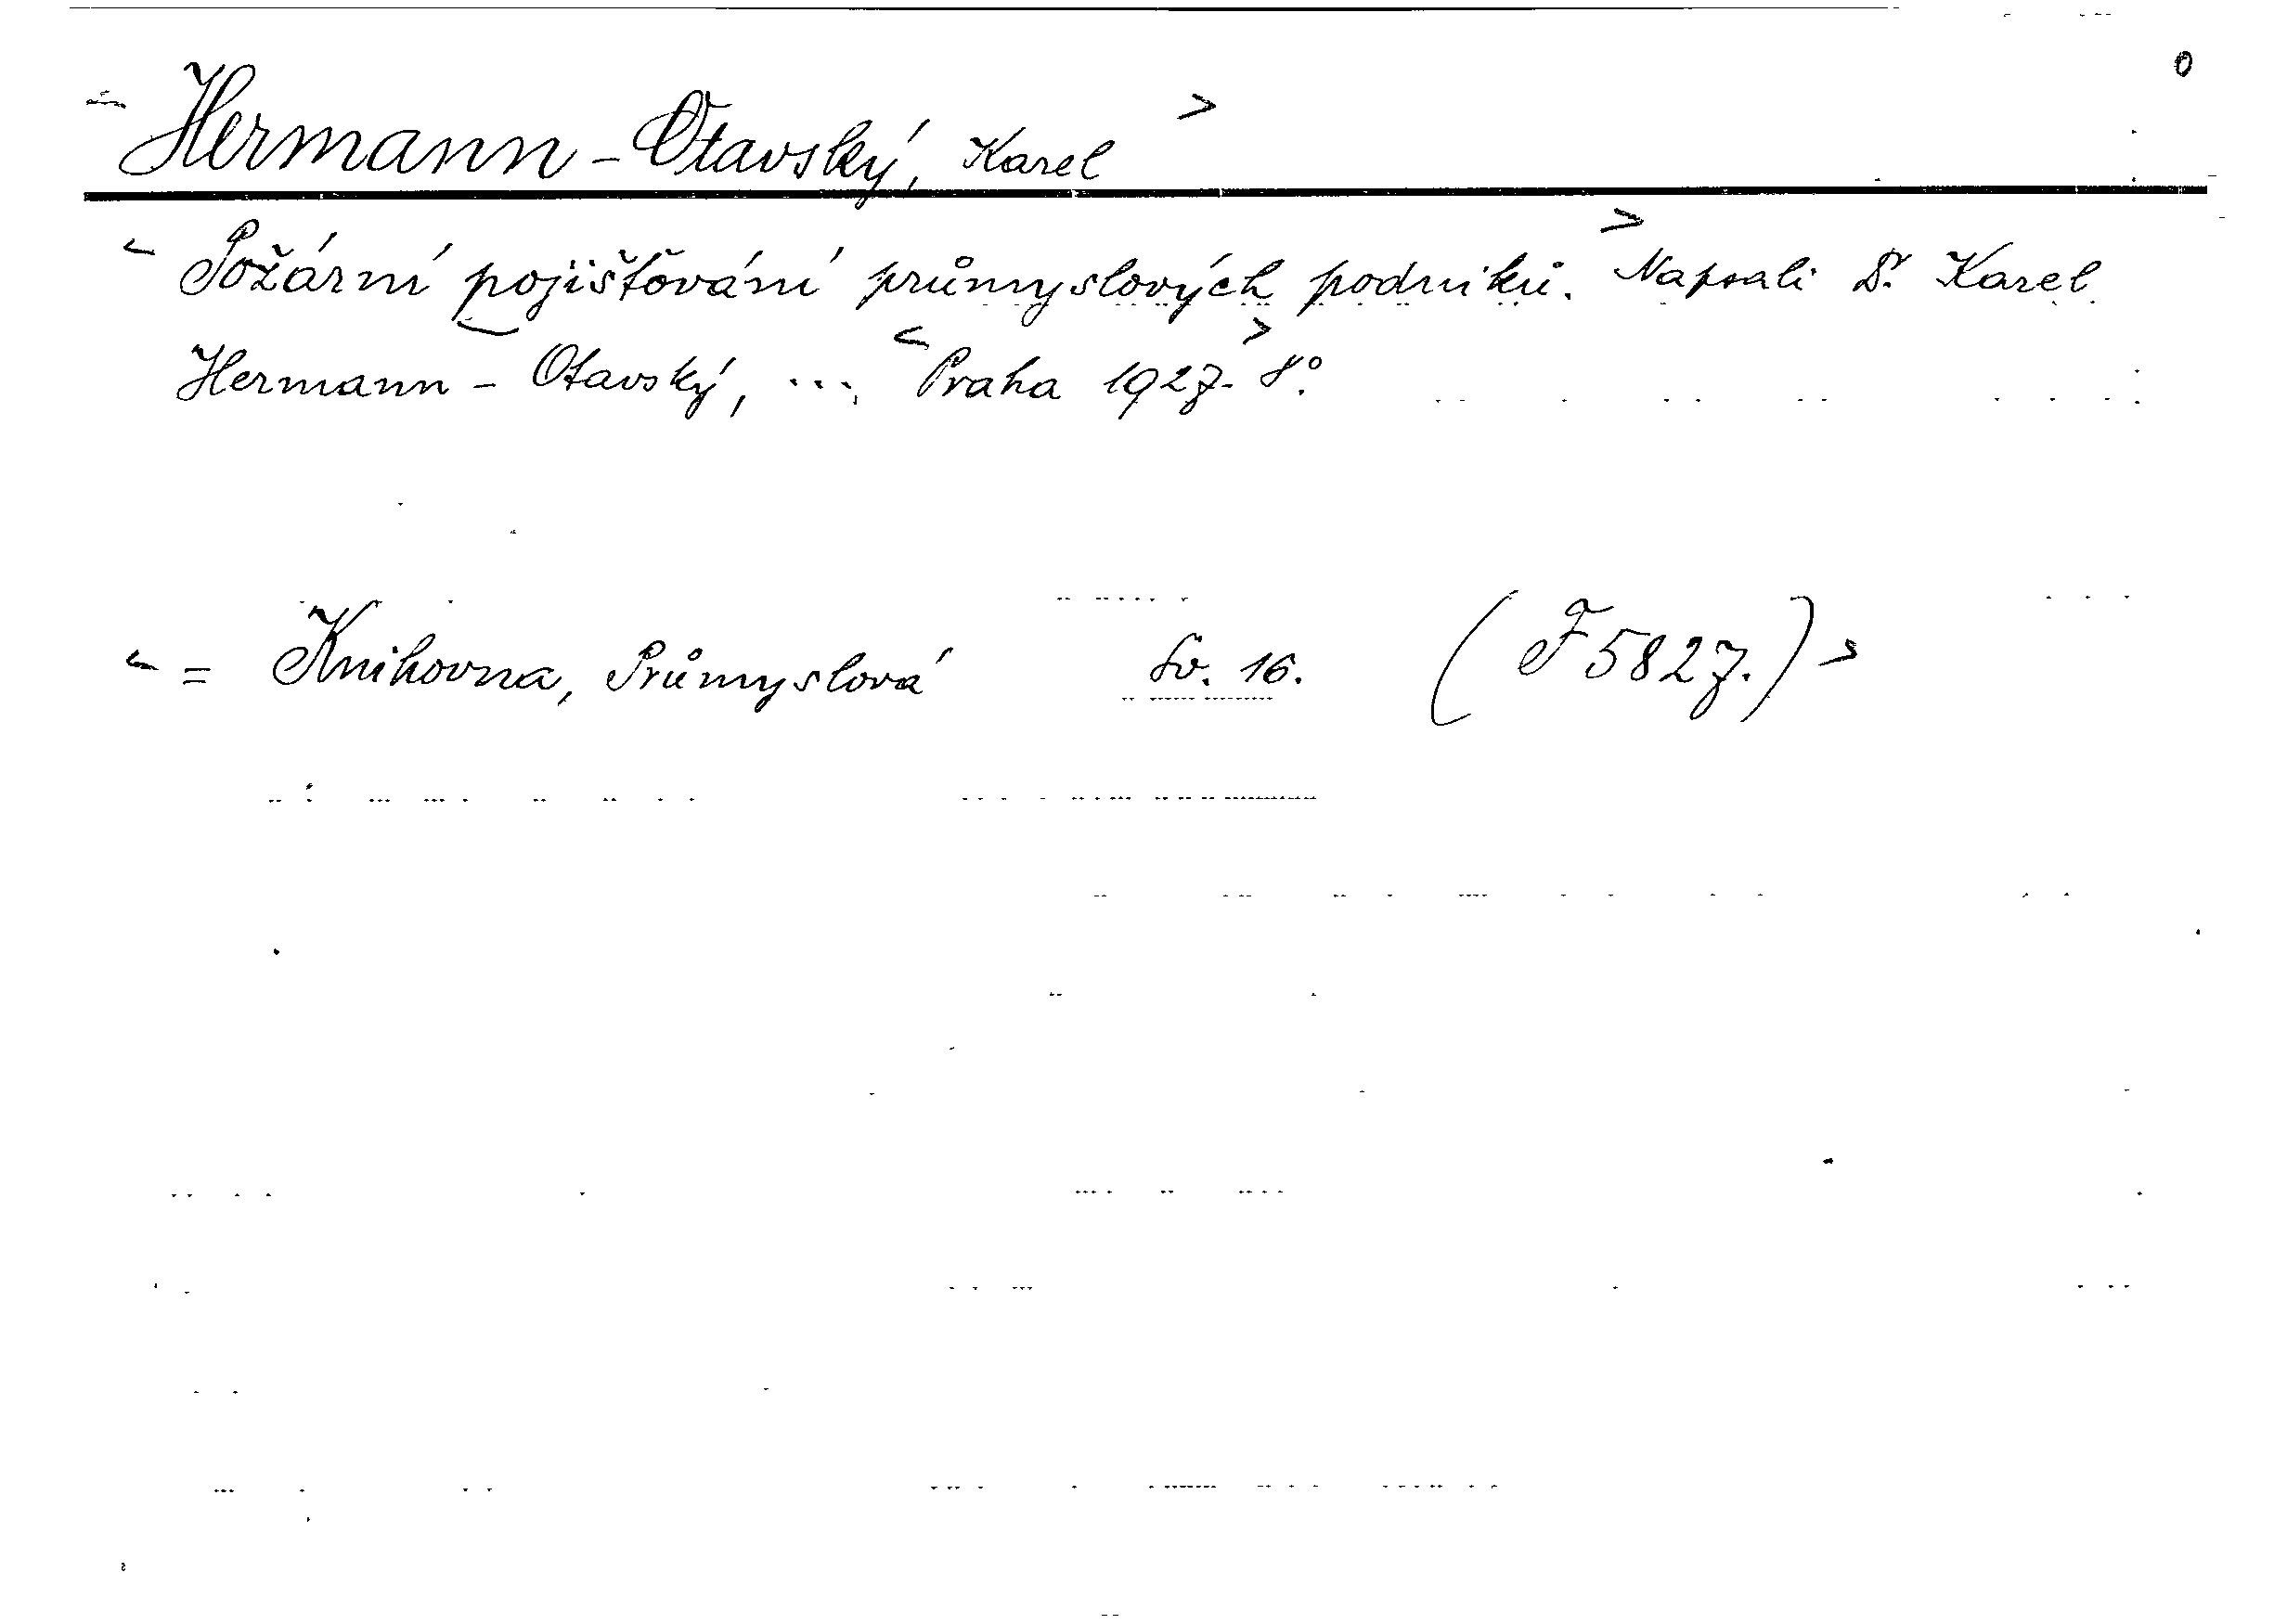 Hermann-Otavský, Karel
Požární pojišťování průmyslových podniků. Napsali Dr. Karel
Hermann - Otavský, ... Praha 1927. 8°.
= Knihovna, Průmyslová Sv. 16. (F 5827.)